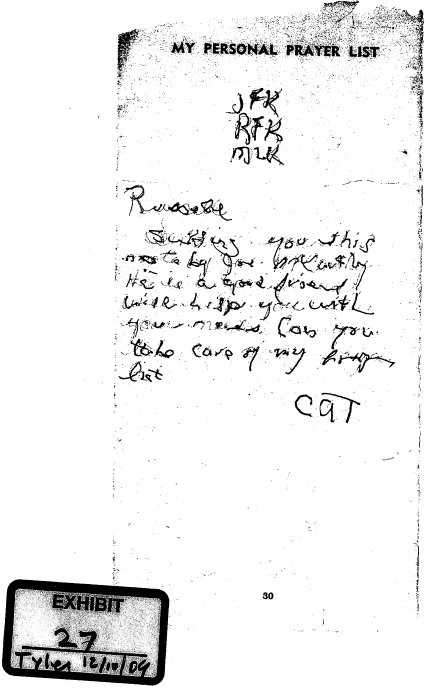 MY PERSONAL PRAYER LIST
JFK
RFK
MLK
Russell
Sending you this
note by Joe McCarthy
He is a good friend
will help you with
your needs. Can you
take care of my
list
CGT
30
EXHIBIT
27
Tyler 12/10/09